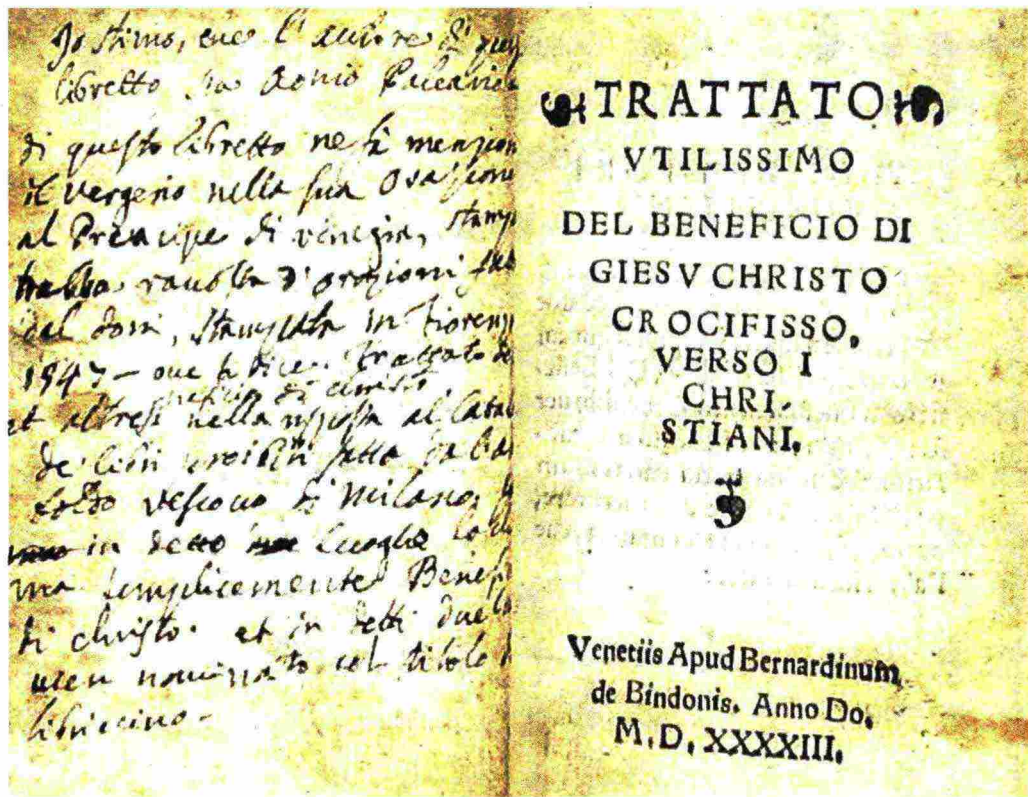 Io stimo, che l' autore di ques
libretto sia Aonio Paleario
di questo libretto ne fà menzion
il Vergerio nella sua Orazione
al Prencipe di Venezia, stamp
raccolta d' orazioni
dal Doni, stampata in Fiorenz
1547 – ove si dice. trattato de
neficio di Christo
et altresì nella risposta al Cata
de' libri proibiti fatta da
vescovo di Milano,
in detto luogho lo
ma semplicemente Benef
di Christo. et in detti due lo
vien nominato col titolo
libriccino –
TRATTATO
VTILISSIMO
DEL BENEFICIO DI
GIESV CHRISTO
CROCIFISSO,
VERSO I
CHRI-
STIANI.
Venetiis Apud Bernardinum
de Bindonis. Anno Do.
M.D. XXXXIII.